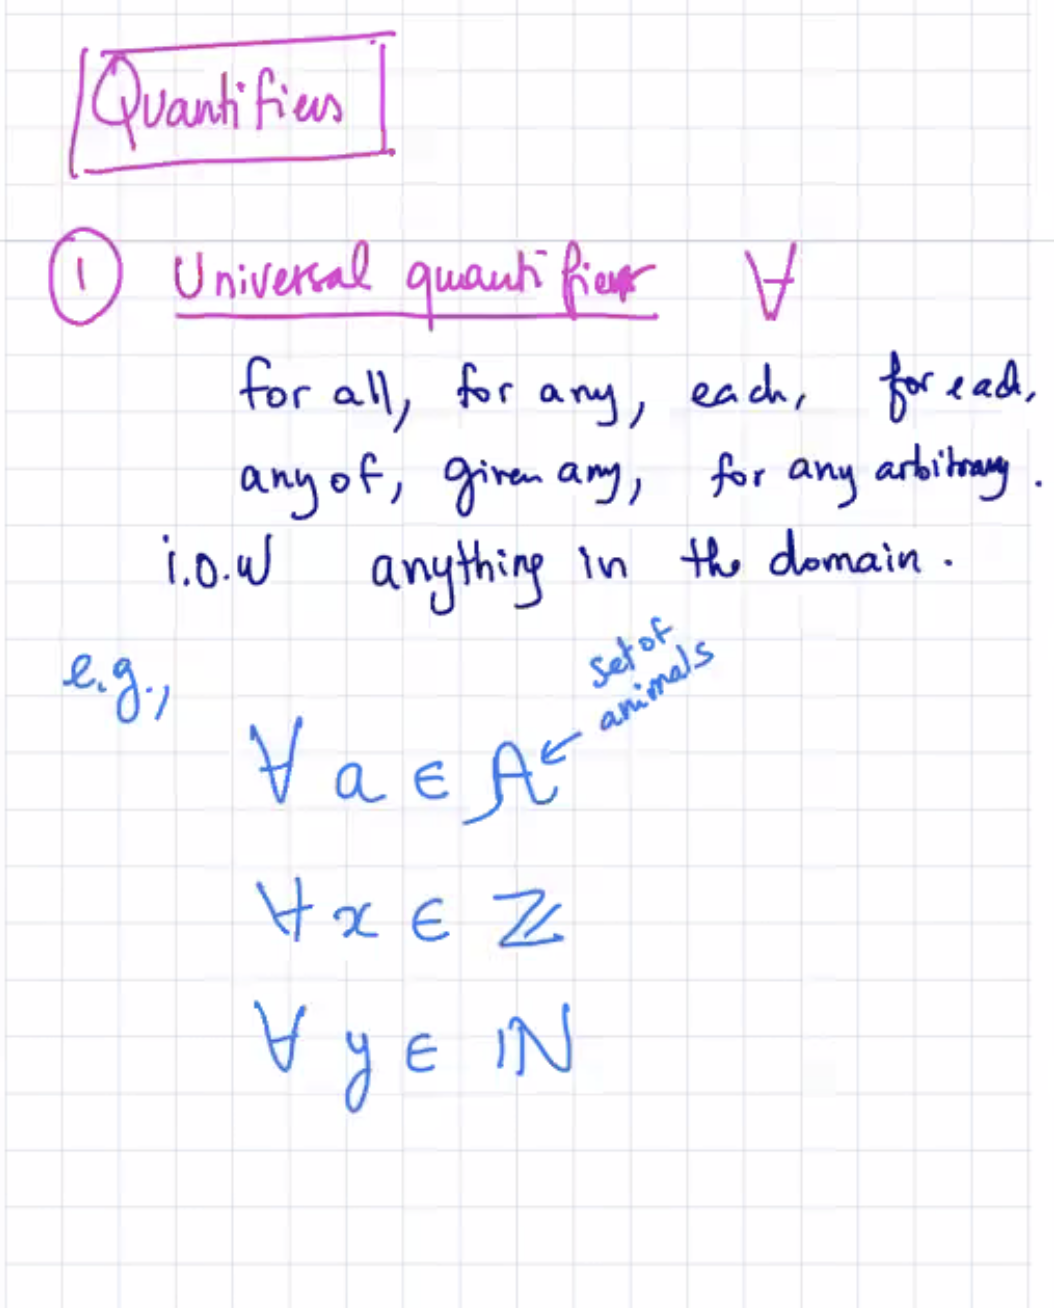 Quantifiers
① Universal quantifier ∀
for all, for any, each, for each,
any of, given any, for any arbitrary.
i.o.w anything in the domain.
e.g.,
set of
animals
∀ a ∈ A
∀ x ∈ ℤ
∀ y ∈ ℕ